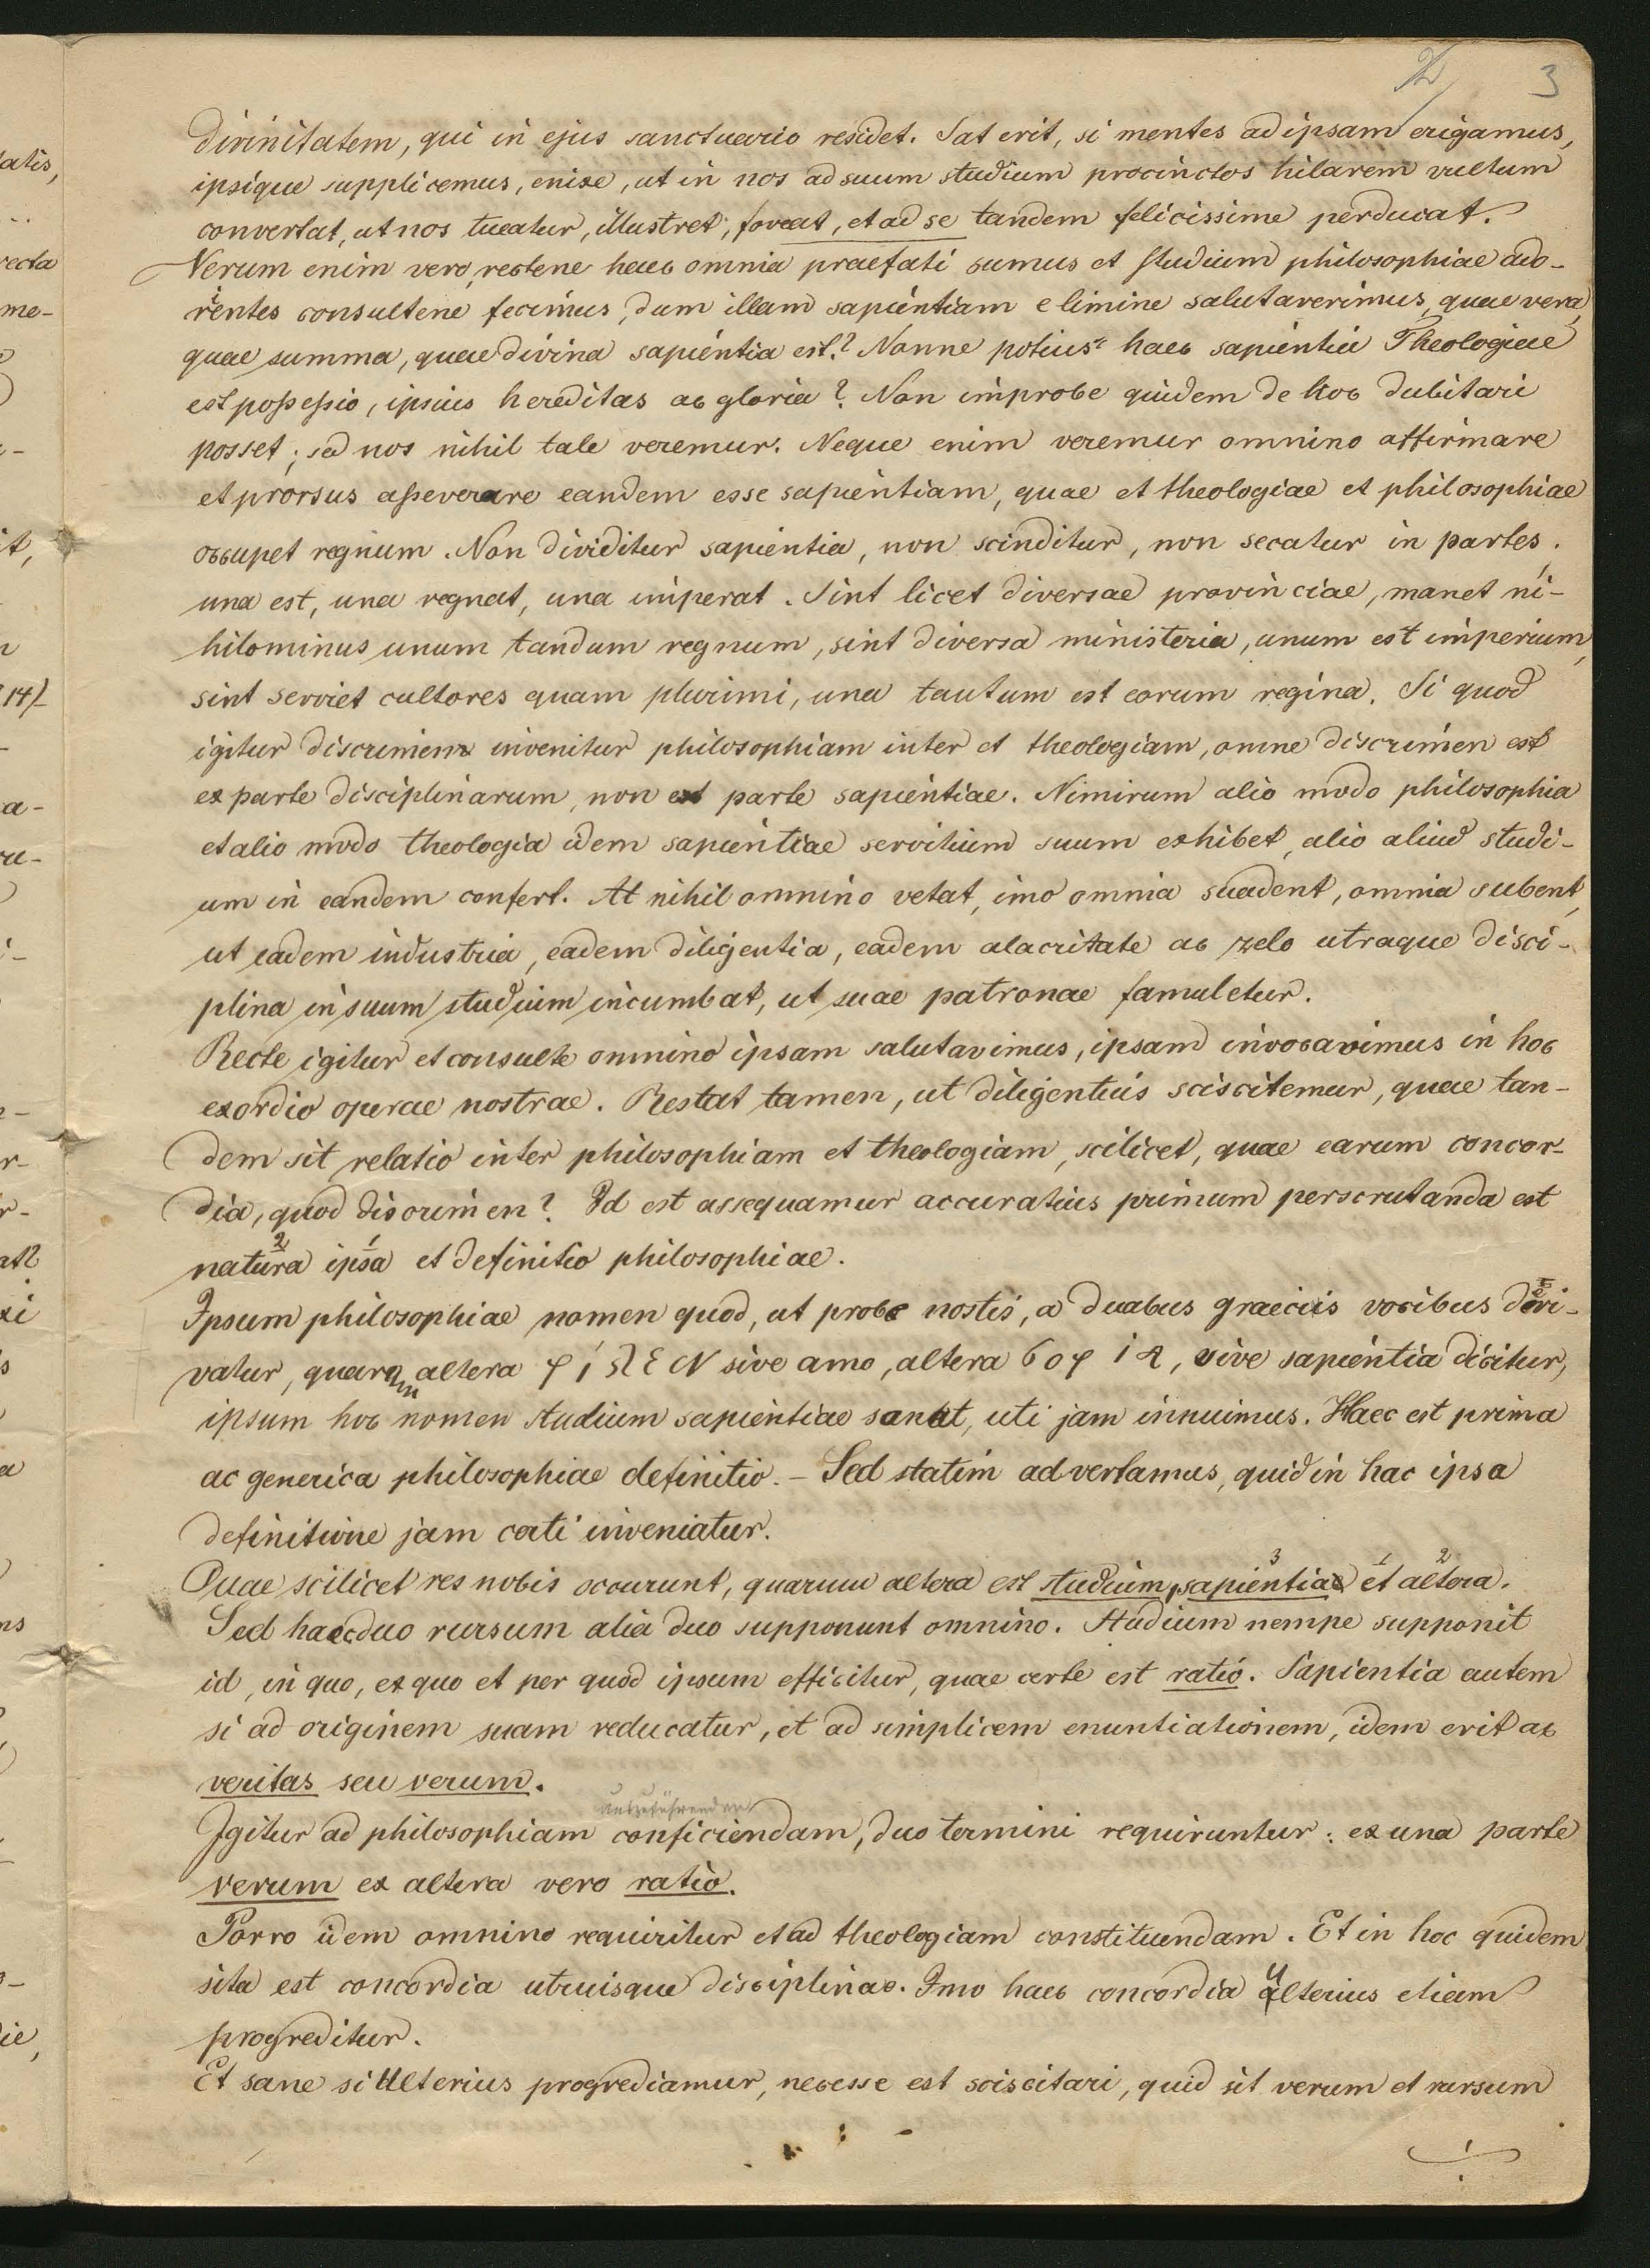 3
Divinitatem, qui in ejus sanctuario residet. Sat erit, si mentes ad ipsam erigamus,
ipsique supplicemus, enixe, ut in nos ad suum studium procinctos hilarem vultum
convertat, ut nos tueatur, illustret, foveat, et ad se tandem felicissime perducat.
Verum enim vero, rectene haec omnia praefati sumus et studium philosophiae ado-
rientes consultene fecimus, dum illam sapientiam e limine salutaverimus, quae vera,
quae summa, quae divina sapientia est? Nonne potius haec sapientia Theologiae
est possessio, ipsius hereditas ac gloria? Non improbe quidem de hoc dubitari
posset; sed nos nihil tale veremur. Neque enim veremur omnino affirmare
et prorsus asseverare eandem esse sapientiam, quae et theologiae et philosophiae
occupet regnum. Non dividitur sapientia, non scinditur, non secatur in partes,
una est, una regnat, una imperat. Sint licet diversae provinciae, manet ni-
hilominus unum tandum regnum, sint diversa ministeria, unum est imperium,
sint serviet cultores quam plurimi, una tautum est eorum regina. Si quod
igitur discrimen invenitur philosophiam inter et theologiam, omne discrimen est
ex parte disciplinarum, non ex parte sapientiae. Nimirum alio modo philosophia
et alio modo theologia idem sapientiae servitium suum exhibet, alio aliud studi-
um in eandem confert. At nihil omnino vetat, imo omnia suadent, omnia subent,
ut eadem industria, eadem diligentia, eadem alacritate ac zelo utraque disci-
plina in suum studium incumbat, ut suae patronae famuletur.
Recte igitur et consulte omnino ipsam salutavimus, ipsam invocavimus in hoc
exordio operae nostrae. Restat tamen, ut diligentius sciscitemur, quae tan-
dem sit relatio inter philosophiam et theologiam, scilicet, quae earum concor-
dia, quod discrimen? Id est assequamur accuratius primum perscrutanda est
natura 2 ipsa 1 et definitio philosophiae.
Ipsum philosophiae nomen quod, ut probe nostis, a duabus graecis vocibus deri-
vatur, quarum altera φίλειν sive amo, altera σοφία, sive sapientia dicitur,
ipsum hoc nomen studium sapientiae sonat, uti jam innuimus. Haec est prima
ac generica philosophiae definitio. – Sed statim advertamus, quid in hac ipsa
definitione jam certi inveniatur.
Duae scilicet res nobis occurunt, quarum altera est studium, sapientia 3 et 1 altera 2.
Sed haec duo rursum alia duo supponunt omnino. Studium nempe supponit
id, in quo, ex quo et per quod ipsum efficitur, quae certe est ratio. Sapientia autem
si ad originem suam reducatur, et ad simplicem enuntiationem, idem erit ac
veritas seu verum.
Igitur ad philosophiam conficiendam, duo termini requiruntur: ex una parte
verum ex altera vero ratio.
Porro idem omnino requiritur et ad theologiam constituendam. Et in hoc quidem
sita est concordia utruisque disciplinae. Imo haec concordia ulterius etiam
progreditur.
Et sane si ulterius progrediamur, necesse est sciscitari, quid sit verum et rursum